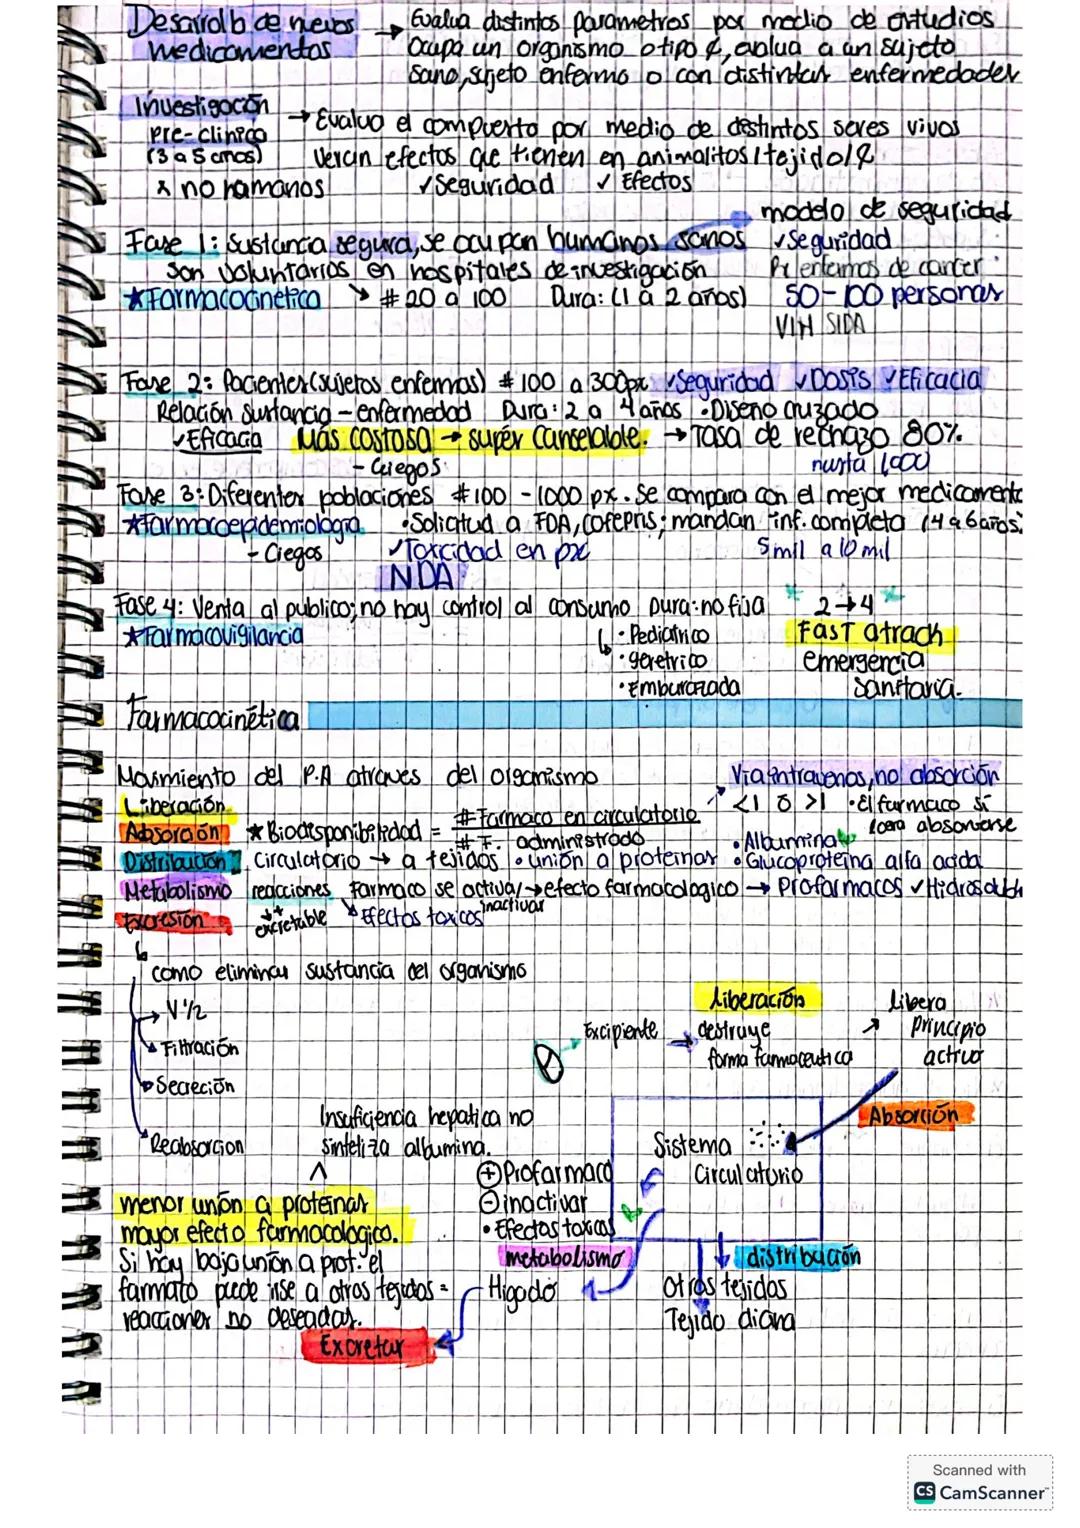 Desarrollo de nuevos → Evalua distintos parametros por medio de estudios
medicamentos Ocupa un organismo o tipo ¢, evalua a un sujeto
sano, sujeto enfermo o con distintas enfermedades
Investigación → Evalua el compuesto por medio de destintos seres vivos
pre-clinica
(3 a 5 años) Veran efectos que tienen en animalitos/tejido/¢
x no humanos ✓Seguridad ✓Efectos
modelo de seguridad
Fase 1: Sustancia segura, se ocupan humanos sanos ✓Seguridad
Son voluntarios en hospitales de investigación Px enfermos de cancer
★Farmacocinetica ↘ #20 a 100 Dura: (1 a 2 años) 50-100 personas
VIH SIDA
Fase 2: Pacientes (sujetos enfermos) #100 a 300px ✓Seguridad ✓Dosis ✓Eficacia
Relación sustancia - enfermedad Dura: 2 a 4 años •Diseño cruzado
✓Eficacia Más costosa → super canselable. → Tasa de rechazo 80%.
- Ciegos hasta 1,000
Fase 3: Diferentes poblaciones #100 - 1000 px. Se compara con el mejor medicamento
★Farmacoepidemiologia •Solicitud a FDA, cofepris; mandan inf. completa (4 a 6 años)
- Ciegos ✓Toxcidad en px 5 mil a 10 mil
NDA
Fase 4: Venta al publico; no hay control al consumo Dura: no fija 2→4
★Farmacovigilancia • Pediatrico Fast atrack
• geretrico emergencia
• Embarazada Sanitaria.
Farmacocinética
Movimiento del P.A atraves del organismo Via intravenos, no absorción
Liberación <1 ō >1 •El farmaco si
Absorción ★Biodisponibilidad = #Farmaco en circulatorio absorverse
# F. administrado •Albumina
Distribución Circulatorio → a tejidos •unión a proteinas •Glucoproteina alfa acida
Metabolismo reacciones Farmaco se activa/→efecto farmacologico → Profarmacos ✓
inactivar
Excresión excretable ↘Efectos toxicos
como eliminar sustancia del organismo
→ V ½
Filtración
Secreción
Reabsorcion
Liberación
Excipiente → destruye
forma farmaceutica
↗ Libera
principio
activo
Absorción
Insuficiencia hepatica no
sintetiza albumina.
^
Sistema
Circulatorio
menor unón a proteinas
mayor efecto farmacologico.
Si hay baja unión a prot. el
farmaco puede irse a otros tejidos =
reacciones no deseadas.
⊕Profarmaco
⊖inactivar
• Efectos toxicos
metabolismo
Higado
distribución
Otros tejidos
Tejido diana
Excretar
Scanned with
CS CamScanner